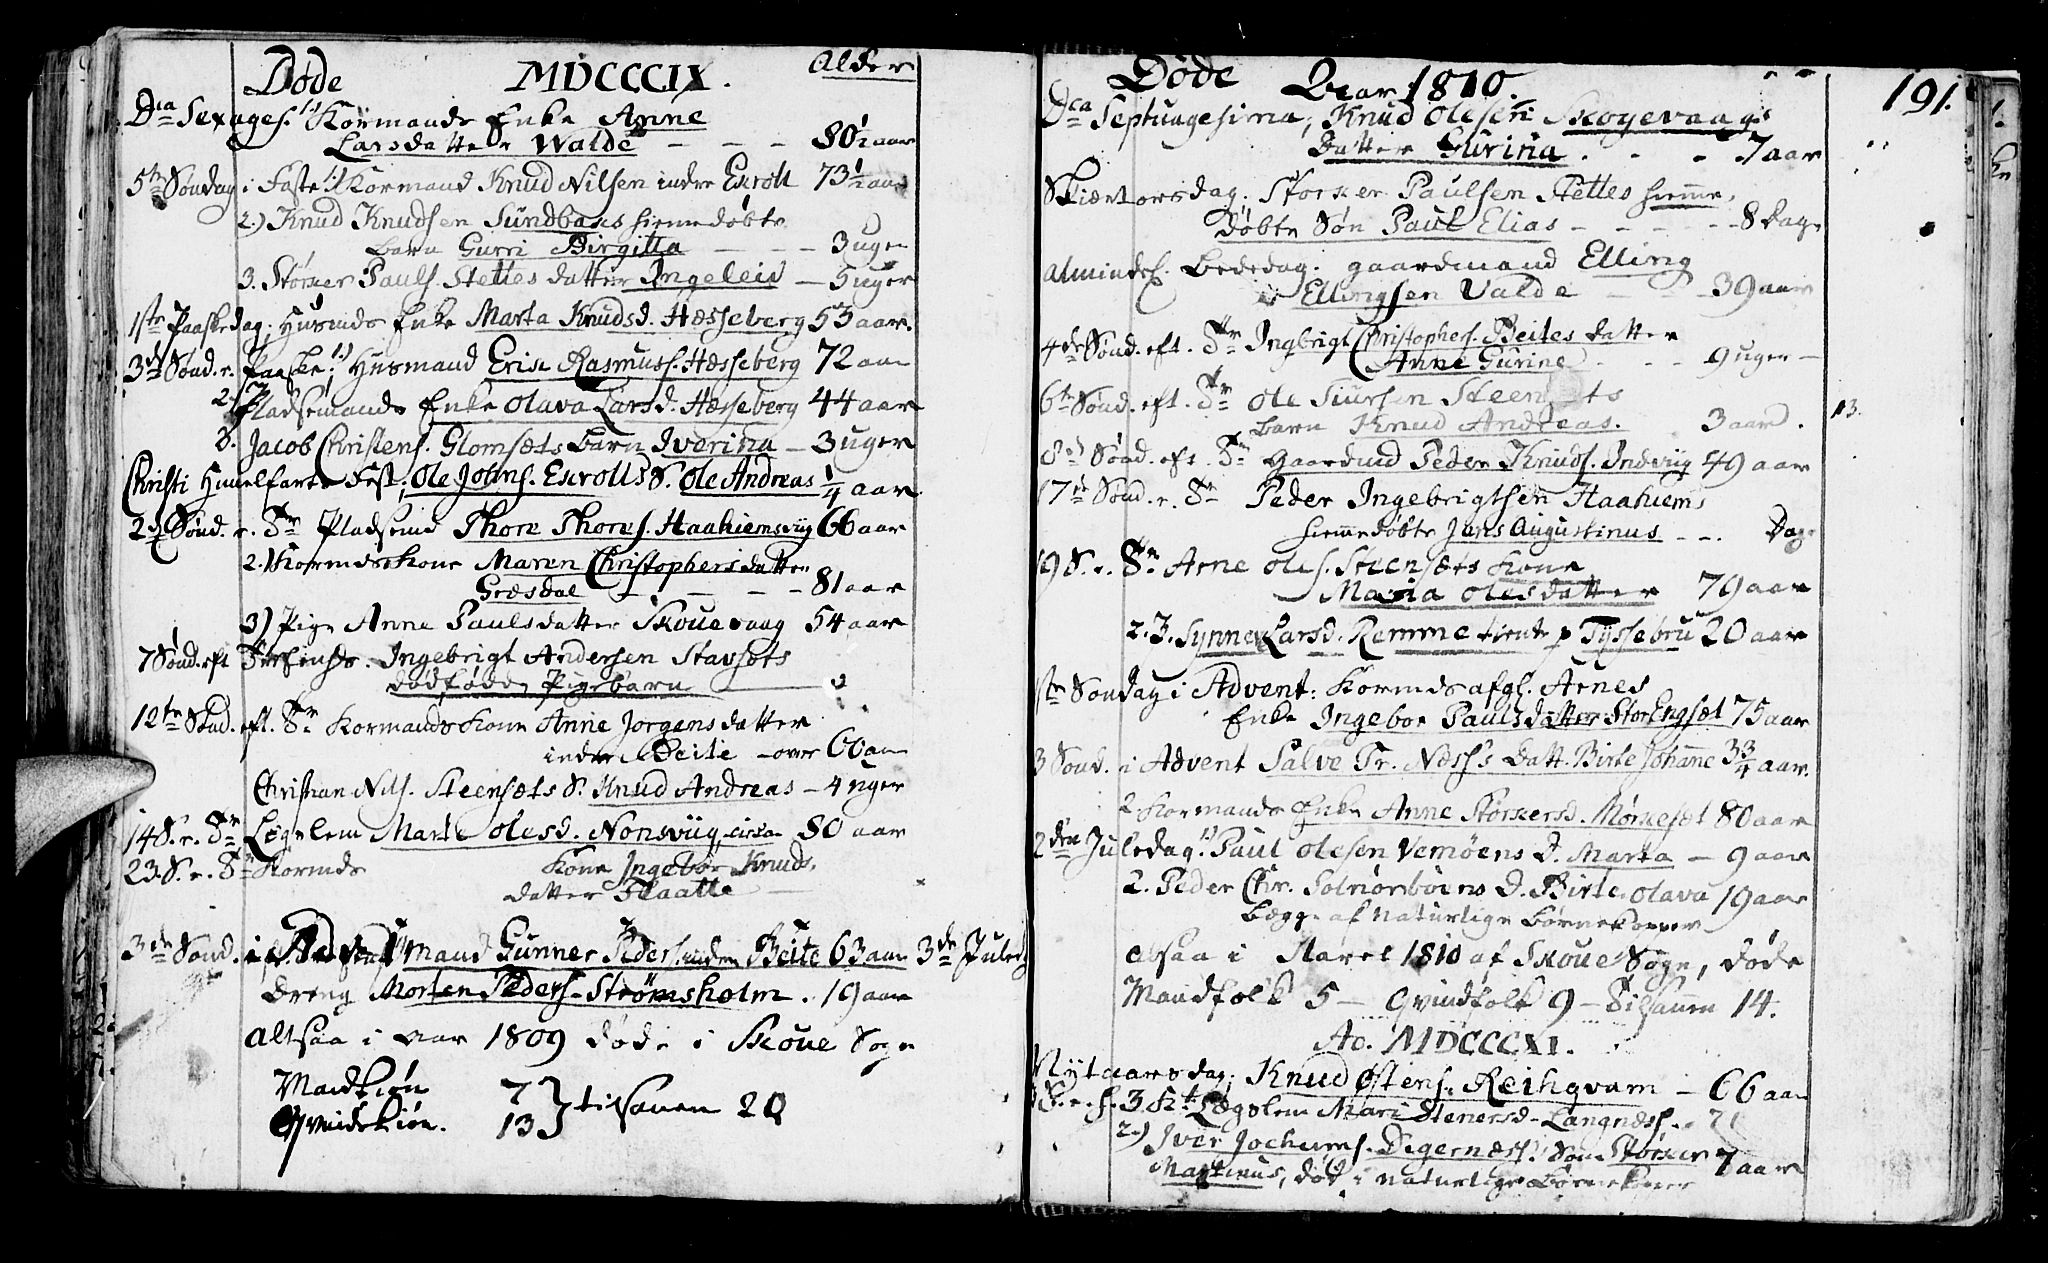 Døde MDCCCIX. Alder
Dca Sexages. 1) Kormands Enke Anne
Larsdatter Walde - - - 80½ aar
5te Søndag i Faste 1) Kormand Knud Nilsen indre Exroll 73½ aar
2.) Knud Knudsen Sundbøens hiemedøbte
barn Gurri Birgitta - - - 3 uger
3. Størker Pauls. Stettes datter Ingeleiv - 5 uger
1ste Paaskedag; Husmds Enke Marta Knudsd. Hæsseberg 53 aar.
3die Sønd. e. Paaske; 1) Husmand Erik Rasmuss. Hæsseberg 72 aar
2) Pladsemands Enke Olava Larsd. Hæsseberg 44 aar
3. Jacob Christens. Glomsæts barn Iverina - 3 uger
Christi Himelfarts Fest; Ole Johns. Exrolls S. Ole Andreas ¼ aar
2d Sønd. e. Tr. Pladsemd Thore Thores. Haahiemsviig 66 aar
2.) Kormds Kone Maren Christophersdatter
Græsdal - - - 81 aar
3) Pige Anne Paulsdatter Skouevaag 54 aar
7 Sønd. eft Trefinds. Ingebrigt Andersen Stavsets
dødfødde Pigebarn - 0
12te Sønd. eft. Tr. Kormands Kone Anne Jørgensdatter
indre Beite - over 60 aar
Christian Nils. Steensæts S. Knud Andreas - 4 uger
14 S. e. Tr Legslem Marte Olesd. Nonsviig circa 80 aar
23. S. e. Tr Kormds Kone Ingebor Knuds.
datter Flaatte
3de Sønd. i Advent mand Gunner Peders. inden Beite 63 aar 3de Juled
Dreng Morten Peders. Strømsholm. 19 aar
Altsaa i Aar 1809 døde i Skoue Sogn
Mandkiøn 7
Qvindekiøn. 13 } tilsamen 20
Døde Aar 1810. 191.
Dca Septuagesima; Knud Olesen Skogevaags
datter Gurina . . . 7 aar
Skiærtorsdag. Størker Paulsen Stettes hieme,
døbte Søn Paul Elias - - - 8 Dage
Almindel. Bededag. gaardmand Elling
Ellingsen Valde - - 39 aar
4de Sønd. eft. Tr Ingbrigt Christophers. Beites datter
Anne Gurine . . . 9 uger -
6te Sønd. eft. Tr Ole Siursen Steensets
barn Knud Andreas. 3 aar. 13.
8de Sønd. eft. Tr Gaardmd Peder Knuds. Indviig 49 aar
17de Sønd. e. Tr Peder Ingebrigtsen Haahiems
hiemedøbte Jens Augustinus - - . Dage
19 S. e. Tr Arne Oles. Steensæts Kone
Maria Olesdatter 79 aar
2. P. Synnev Larsd. Remme tiente p Tyssebru 20 aar
1ste Søndag i Advent: Kormds afgl. Arnes
Enke Ingebor Paulsdatter Storengset 75 aar
3 Sønd. i Advent Salve Tr. Næss's datt. Birte Johanne 3¾ aar.
2 Kormands Enke Anne Størkersd. Mørkeset 80 aar
2den Juledag. 1) Paul Olesen Vemøens D. Marta - 9 aar
2. Peder Chr. Solnørbøens D. Birte Olava 19 aar
begge af naturlige Børnekopper
Altsaa i Aaret 1810 af Skoue Sogn, døde
Mandfolk 5 - Qvindfolk 9 - Tilsamen 14.
Ao. MDCCCXI.
Nytaarsdag; Knud Østens. Reihqvam - 66 aar
S. e. h. 3 K. Legslem Mari Stenersd. Langnæss - 7
2.) Iver Jochums. Degernæss. Søn Størker 7 aar
Martinus, død i naturlige Børnekopper